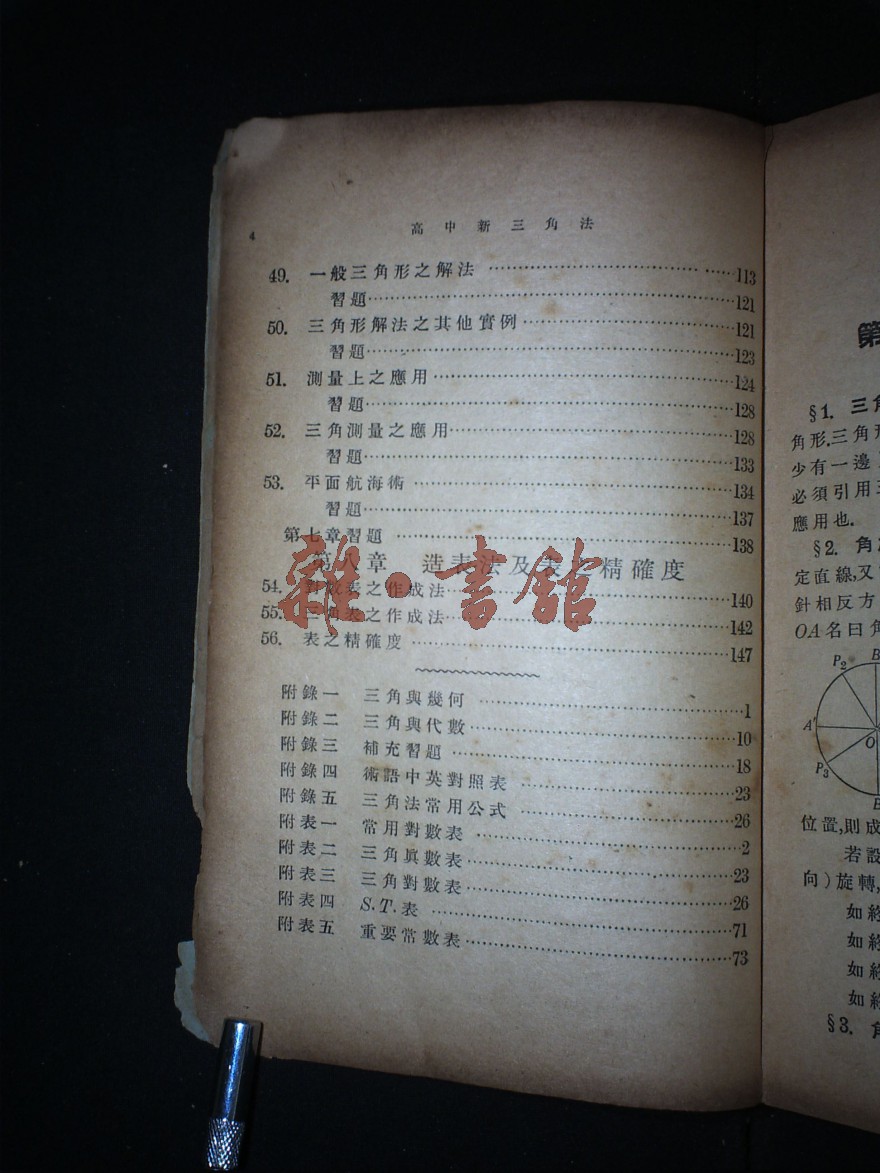 4
高中新三角法
49. 一般三角形之解法 113
習題 121
50. 三角形解法之其他實例 121
習題 123
51. 測量上之應用 124
習題 128
52. 三角測量之應用 128
習題 133
53. 平面航海術 134
習題 137
第七章習題 138
第八章 造表法及表之精確度
54. 對數表之作成法 140
55. 三角表之作成法 142
56. 表之精確度 147
附錄一 三角與幾何 1
附錄二 三角與代數 10
附錄三 補充習題 18
附錄四 術語中英對照表 23
附錄五 三角法常用公式 26
附表一 常用對數表 2
附表二 三角眞數表 23
附表三 三角對數表 26
附表四 S.T.表 71
附表五 重要常數表 73
雜·書館
第
§1. 三角
角形.三角形
少有一邊
必須引用三
應用也.
§2. 角
定直線,又
針相反方
OA名曰角
P2 B
A'
O
P3
B
位置,則成
若設
向)旋轉,
如終
如終
如終
如終
§3. 角